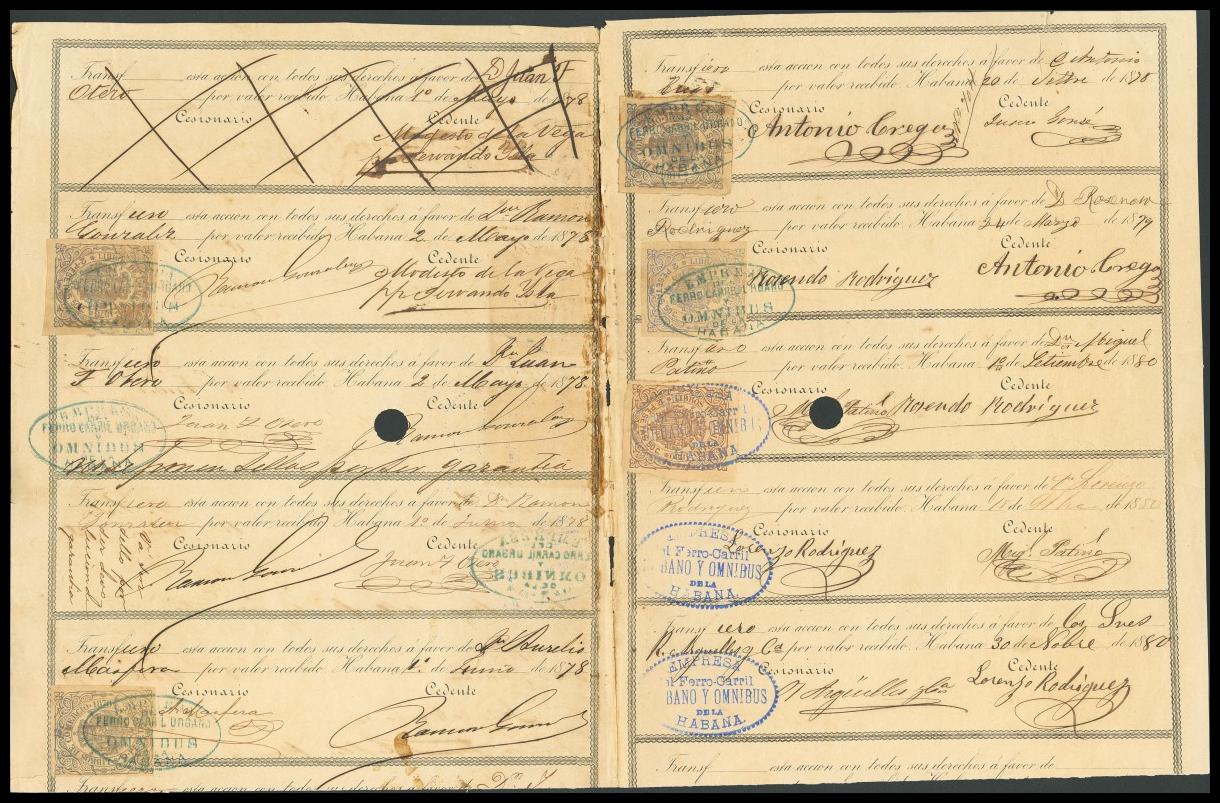 Transf esta acción con todos sus derechos á favor de Dn Juan F
Otero por valor recibido. Habana 1º de Mayo de 1878
Cesionario Cedente
Modesto de la Vega
pp Servando Ysla
Transfiero esta acción con todos sus derechos á favor de Dn Ramon
Gonzalez por valor recibido. Habana 2 de Mayo de 1878
Cesionario Cedente
Ramon Gonzalez Modesto de la Vega
pp Servando Ysla
Transfiero esta acción con todos sus derechos á favor de Dn Juan
F Otero por valor recibido. Habana 2 de Mayo de 1878
Cesionario Cedente
Juan F Otero Ramon Gonzalez
EMPRESA
DEL
FERRO CARRIL URBANO
Y
OMNIBUS
DE LA
HABANA
ponen sellos por ser garantia
Transfiero esta acción con todos sus derechos á favor de Dn Ramon
Gonzalez por valor recibido. Habana 1º de Junio 1878
Cesionario Cedente
Juan F Otero
Va sin
sello por
ser devo
lucion de
garantia
EMPRESA
DEL
FERRO CARRIL URBANO
Y
OMNIBUS
DE LA
Transfiero esta acción con todos sus derechos á favor de Dn Aurelio
Maspera por valor recibido. Habana 1º de Junio de 1878
Cesionario Cedente
FERRO CARRIL URBANO
OMNIBUS
HABANA
Transfiero esta acción con todos sus derechos á favor de Dn J
Transfiero esta acción con todos sus derechos á favor de Dn Antonio
Crego por valor recibido. Habana 20 de Setbre de 1878
Cesionario Cedente
Antonio Crego
FERRO CARRIL URBANO
OMNIBUS
DE LA
HABANA
Transfiero esta acción con todos sus derechos á favor de D. Rosendo
Rodriguez por valor recibido. Habana 24 de Marzo de 1879
Cesionario Cedente
Rosendo Rodriguez Antonio Crego
EMPRESA
DEL
FERRO CARRIL URBANO
Y
OMNIBUS
DE LA
HABANA
Transfiero esta acción con todos sus derechos á favor de Dn Miguel
Patiño por valor recibido. Habana 1º de Setiembre de 1880
Cesionario Cedente
Patiño Rosendo Rodriguez
Ferro-Carril
DE LA
HABANA
Transfiero esta acción con todos sus derechos á favor de Dn Lorenzo
Rodriguez por valor recibido. Habana de de 1880
Cesionario Cedente
Lorenzo Rodriguez Migl Patiño
EMPRESA
l Ferro-Carril
BANO Y OMNIBUS
DE LA
HABANA
Transfiero esta acción con todos sus derechos á favor de los Sres
R. Arguelles y Ca por valor recibido. Habana 30 de Nobre de 1880
Cesionario Cedente
R Argüelles y Ca Lorenzo Rodriguez
EMPRESA
l Ferro-Carril
BANO Y OMNIBUS
DE LA
HABANA
Transf esta acción con todos sus derechos á favor de